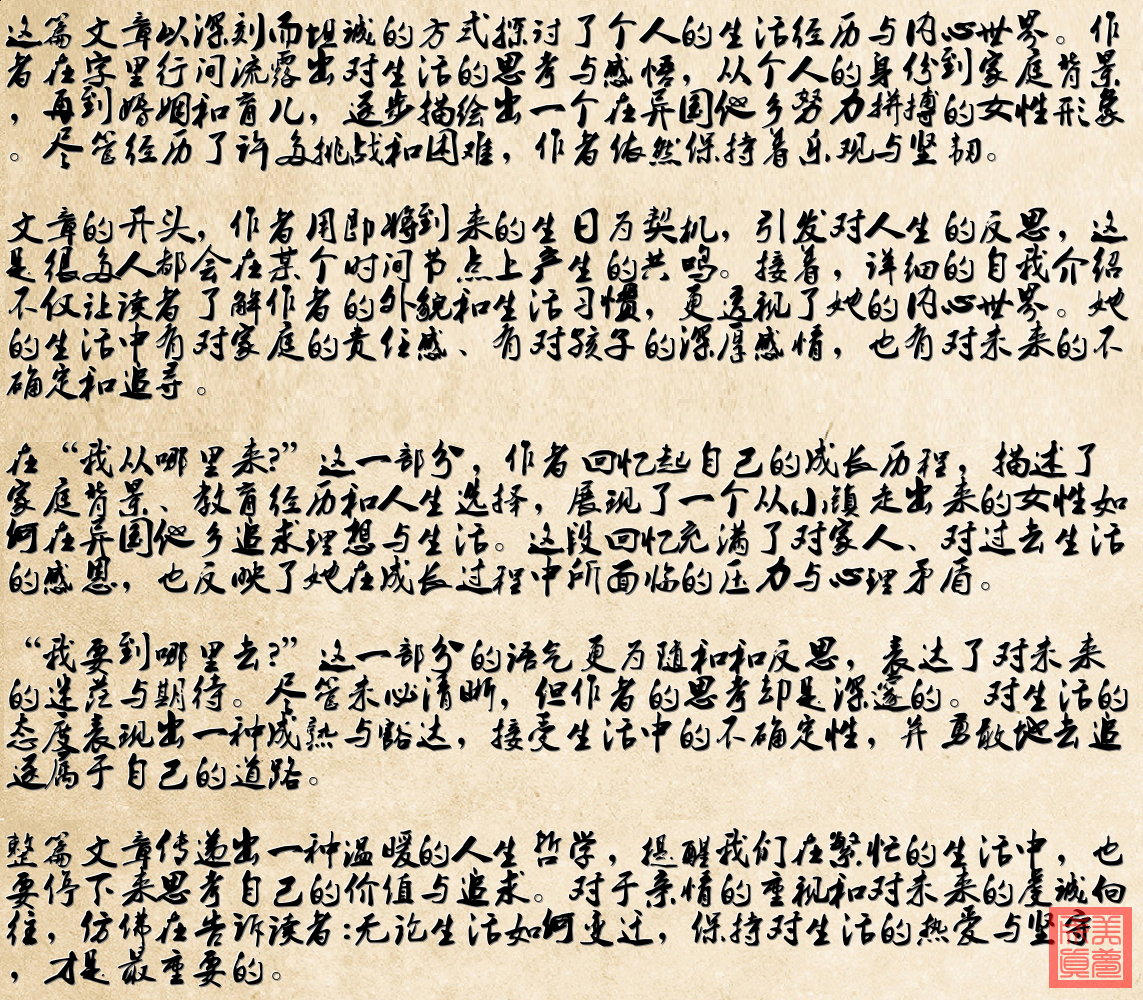 这篇文章以深刻而坦诚的方式探讨了个人的生活经历与内心世界。作
者在字里行间流露出对生活的思考与感悟，从个人的身份到家庭背景
，再到婚姻和育儿，逐步描绘出一个在异国他乡努力拼搏的女性形象
。尽管经历了许多挑战和困难，作者依然保持着乐观与坚韧。
文章的开头，作者用即将到来的生日为契机，引发对人生的反思，这
是很多人都会在某个时间节点上产生的共鸣。接着，详细的自我介绍
不仅让读者了解作者的外貌和生活习惯，更透视了她的内心世界。她
的生活中有对家庭的责任感、有对孩子的深厚感情，也有对未来的不
确定和追寻。
在“我从哪里来?”这一部分，作者回忆起自己的成长历程，描述了
家庭背景、教育经历和人生选择，展现了一个从小镇走出来的女性如
何在异国他乡追求理想与生活。这段回忆充满了对家人、对过去生活
的感恩，也反映了她在成长过程中所面临的压力与心理矛盾。
“我要到哪里去?”这一部分的语气更为随和和反思，表达了对未来
的迷茫与期待。尽管未必清晰，但作者的思考却是深邃的。对生活的
态度表现出一种成熟与豁达，接受生活中的不确定性，并勇敢地去追
逐属于自己的道路。
整篇文章传递出一种温暖的人生哲学，提醒我们在繁忙的生活中，也
要停下来思考自己的价值与追求。对于亲情的重视和对未来的虔诚向
往，仿佛在告诉读者:无论生活如何变迁，保持对生活的热爱与坚守
，才是最重要的。